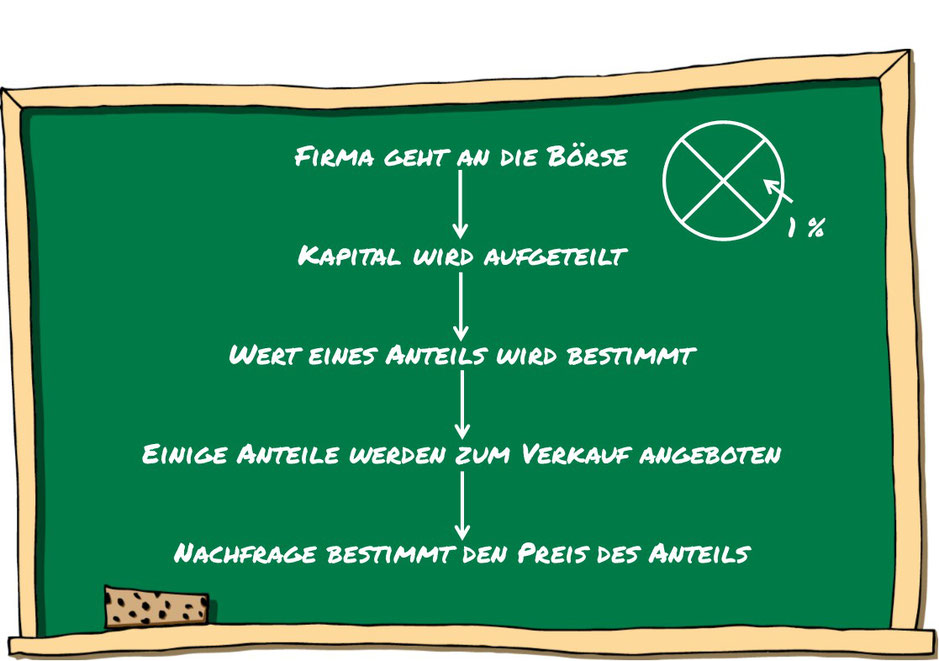 Firma geht an die Börse
1 %
Kapital wird aufgeteilt
Wert eines Anteils wird bestimmt
Einige Anteile werden zum Verkauf angeboten
Nachfrage bestimmt den Preis des Anteils